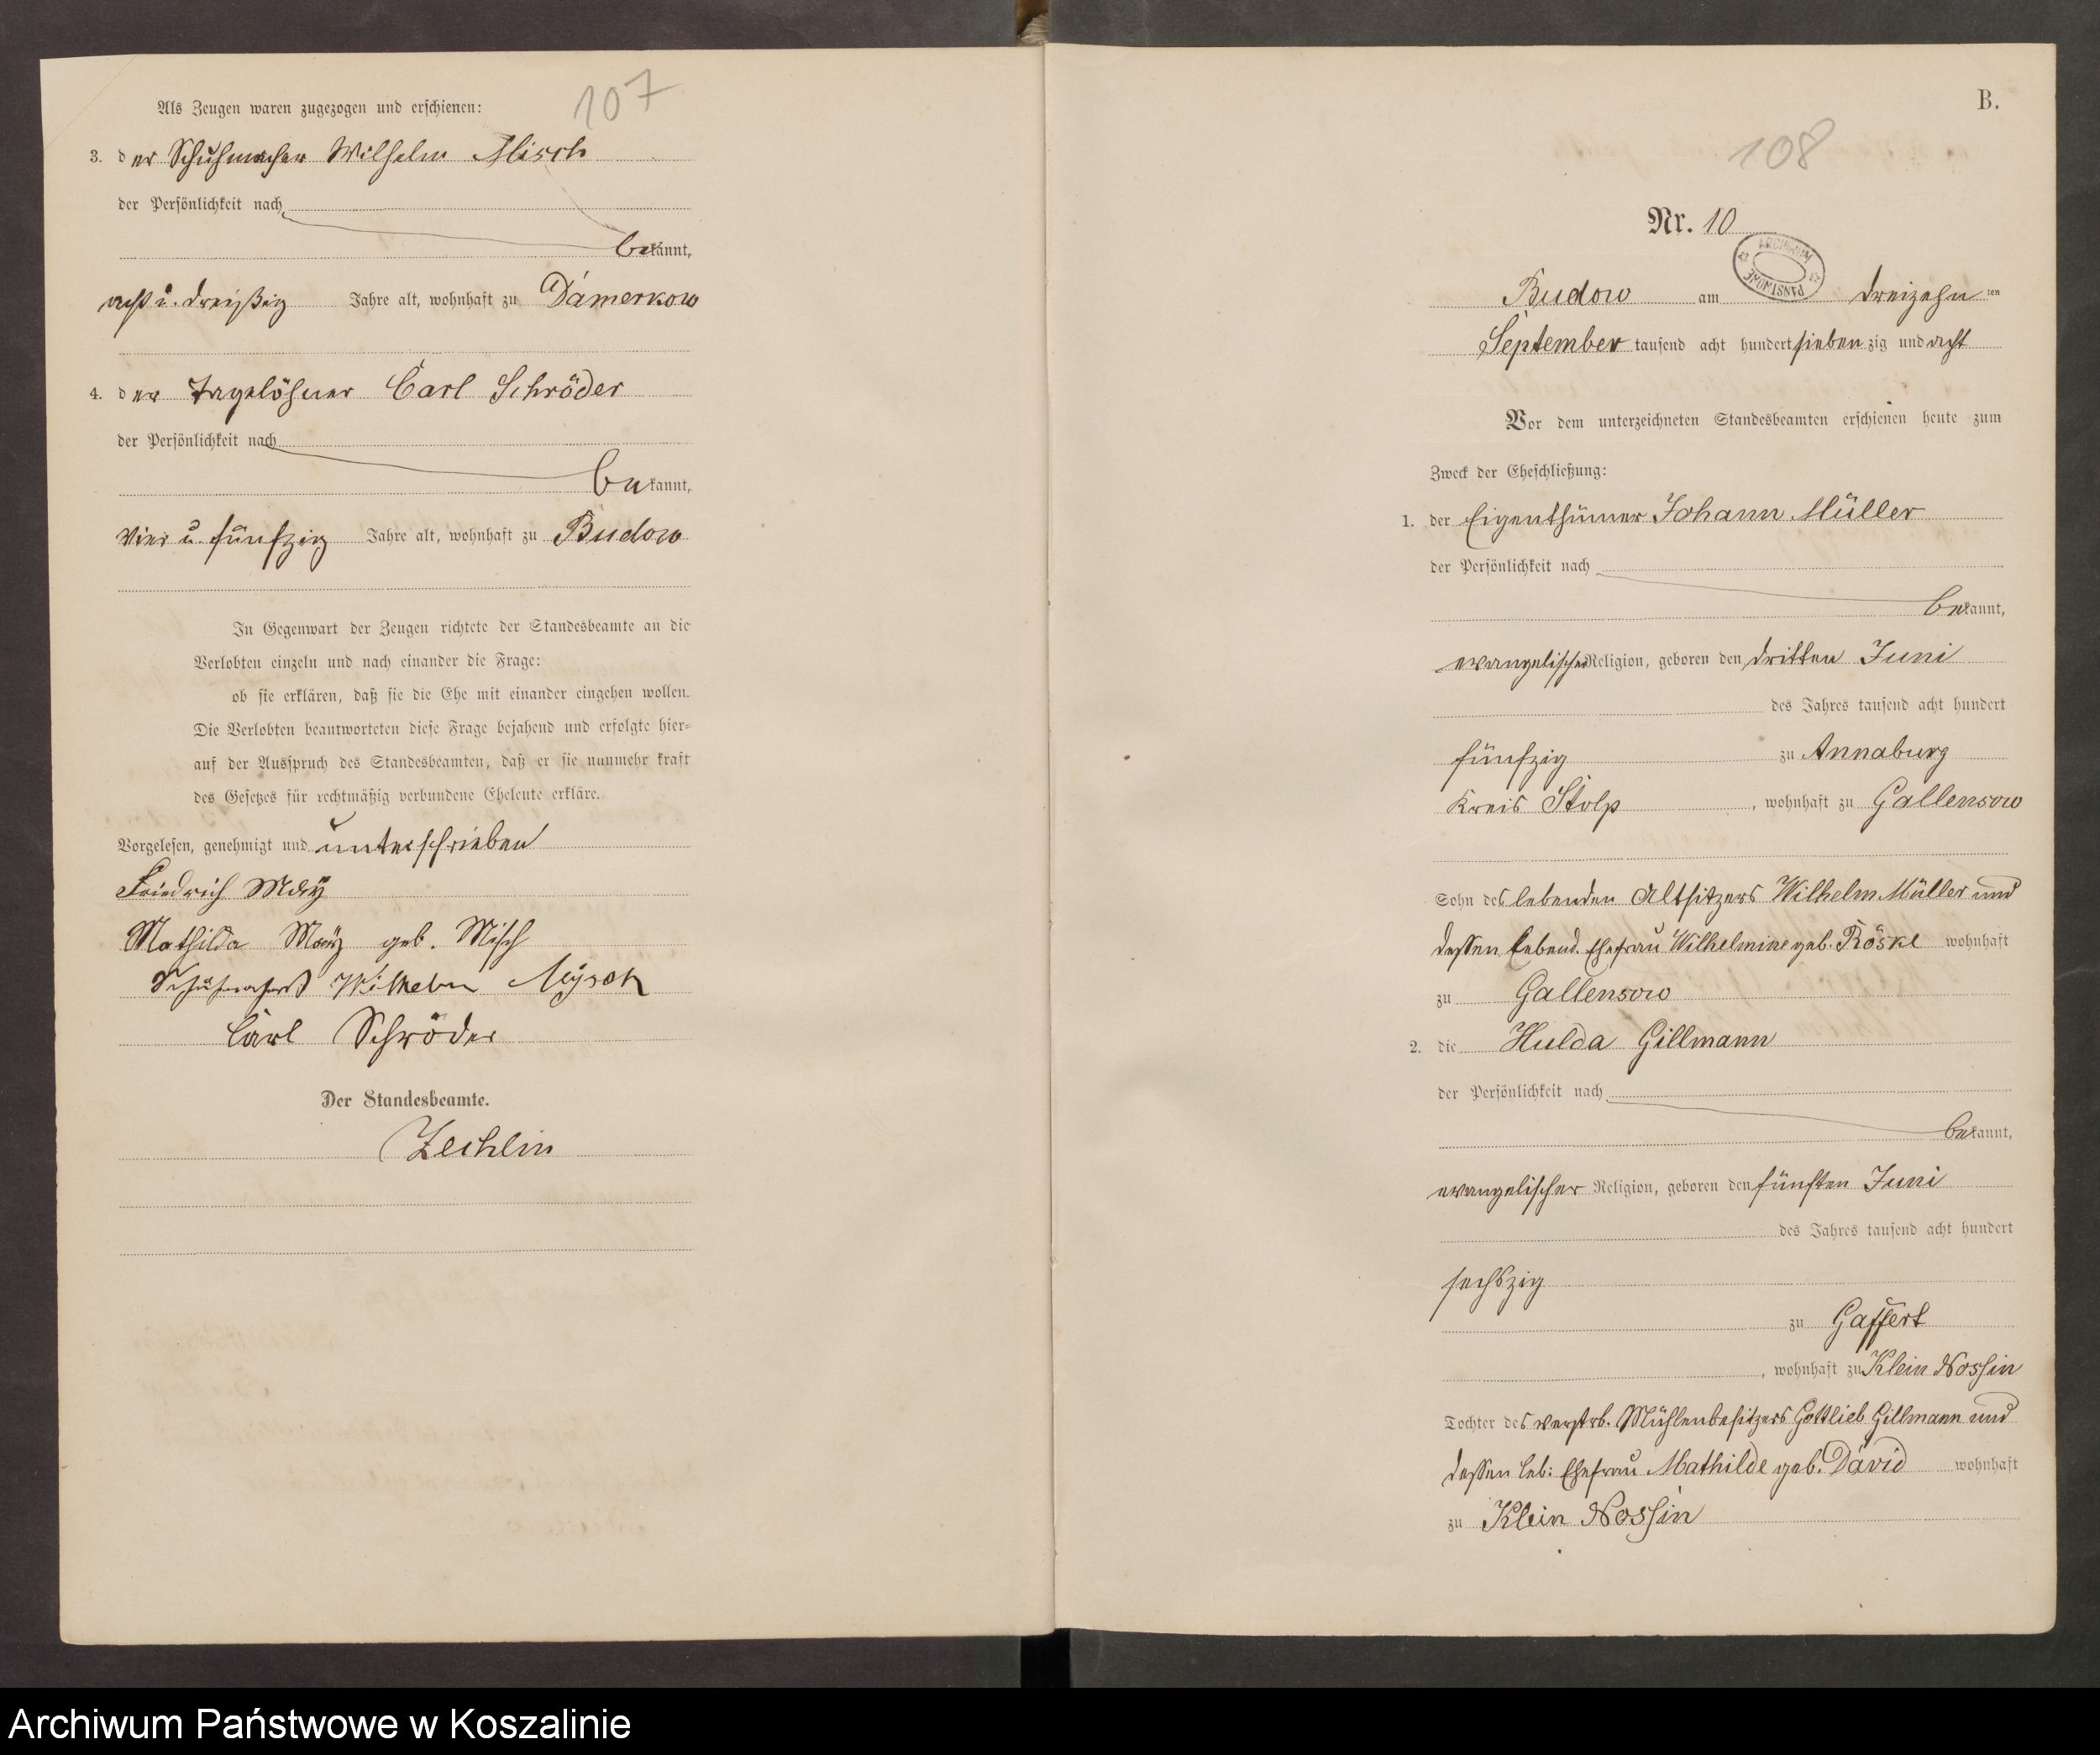 107
Als Zeugen waren zugezogen und erschienen:
3. der Schuhmacher Wilhelm Misch
der Persönlichkeit nach
bekannt,
acht u. dreißig Jahre alt, wohnhaft zu Damerkow
4. der Tagelöhner Carl Schröder
der Persönlichkeit nach
bekannt,
vier u. fünfzig Jahre alt, wohnhaft zu Budow
In Gegenwart der Zeugen richtete der Standesbeamte an die
Verlobten einzeln und nach einander die Frage:
ob sie erklären, daß sie die Ehe mit einander eingehen wollen.
Die Verlobten beantworteten diese Frage bejahend und erfolgte hier-
auf der Ausspruch des Standesbeamten, daß er sie nunmehr kraft
des Gesetzes für rechtmäßig verbundene Eheleute erkläre.
Vorgelesen, genehmigt und unterschrieben
Friedrich
Mathilda geb. Misch
Wilhelm
Carl Schröder
Der Standesbeamte.
Zechlin
B.
108
Nr. 10
ARCHIWUM PAŃSTWOWE
Budow am dreizehnten
September tausend acht hundert siebenzig und acht
Vor dem unterzeichneten Standesbeamten erschienen heute zum
Zweck der Eheschließung:
1. der Eigenthümer Johann Müller
der Persönlichkeit nach
bekannt,
evangelischer Religion, geboren den dritten Juni
des Jahres tausend acht hundert
fünfzig zu Annaburg
Kreis Stolp, wohnhaft zu Gallensow
Sohn des lebenden Altsitzers Wilhelm Müller und
dessen lebend. Ehefrau Wilhelmine geb. Röske wohnhaft
zu Gallensow
2. die Hulda Gillmann
der Persönlichkeit nach
bekannt,
evangelischer Religion, geboren den fünften Juni
des Jahres tausend acht hundert
sechszig
zu Gaffert
, wohnhaft zu Klein Nossin
Tochter des verstrb. Mühlenbesitzers Gottlieb Gillmann und
dessen leb: Ehefrau Mathilde geb. David wohnhaft
zu Klein Nossin
Archiwum Państwowe w Koszalinie